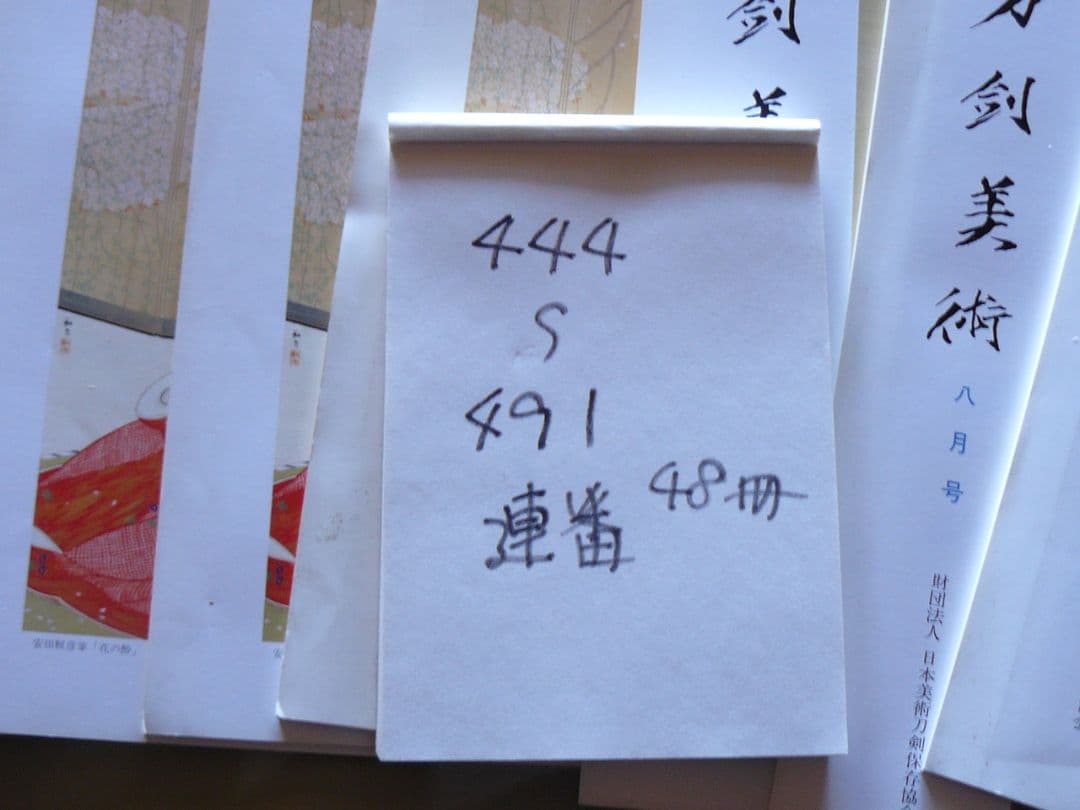 444
S
491
連番 48冊
剣美
刀剣美術
八月号
財団法人 日本美術刀剣保存協会
安田靫彦筆「花の酔」